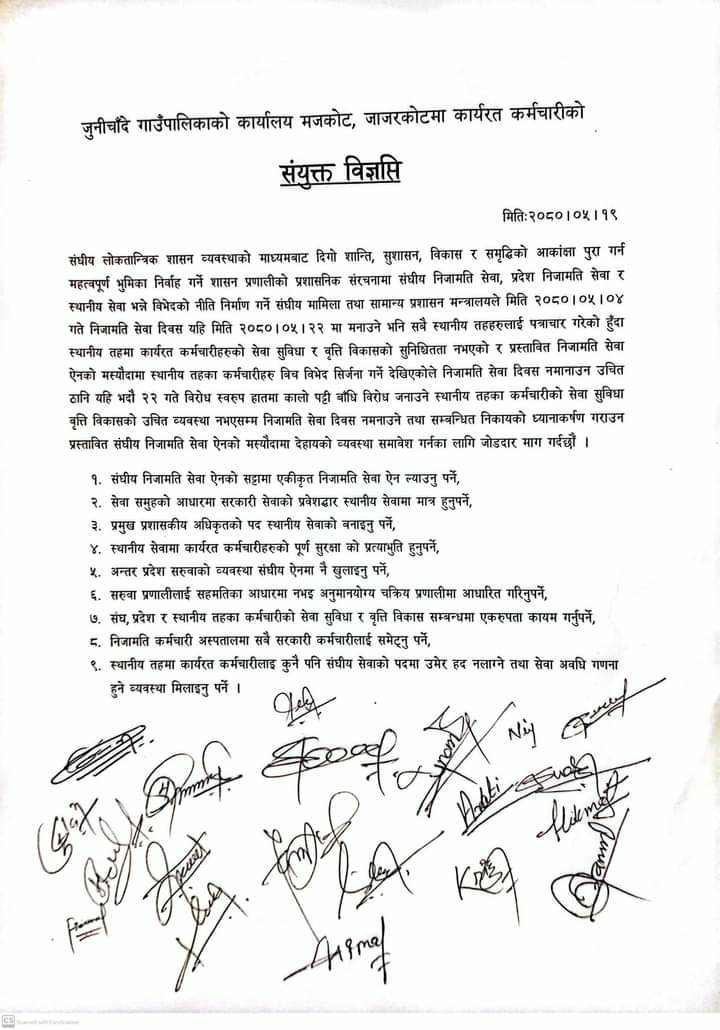 जुनीचाँदे गाउँपालिकाको कार्यालय मजकोट, जाजरकोटमा कार्यरत कर्मचारीको
संयुक्त विज्ञप्ति
मितिः२०८०।०५।१९
संघीय लोकतान्त्रिक शासन व्यवस्थाको माध्यमबाट दिगो शान्ति, सुशासन, विकास र समृद्धिको आकांक्षा पुरा गर्न
महत्वपूर्ण भुमिका निर्वाह गर्ने शासन प्रणालीको प्रशासनिक संरचनामा संघीय निजामति सेवा, प्रदेश निजामति सेवा र
स्थानीय सेवा भन्ने विभेदको नीति निर्माण गर्ने संघीय मामिला तथा सामान्य प्रशासन मन्त्रालयले मिति २०८०।०५।०४
गते निजामति सेवा दिवस यहि मिति २०८०।०५।२२ मा मनाउने भनि सबै स्थानीय तहहरुलाई पत्राचार गरेको हुँदा
स्थानीय तहमा कार्यरत कर्मचारीहरुको सेवा सुविधा र वृत्ति विकासको सुनिश्चितता नभएको र प्रस्तावित निजामति सेवा
ऐनको मस्यौदामा स्थानीय तहका कर्मचारीहरु विच विभेद सिर्जना गर्ने देखिएकोले निजामति सेवा दिवस नमानाउन उचित
ठानि यहि भदौ २२ गते विरोध स्वरुप हातमा कालो पट्टी बाँधि विरोध जनाउने स्थानीय तहका कर्मचारीको सेवा सुविधा
वृत्ति विकासको उचित व्यवस्था नभएसम्म निजामति सेवा दिवस नमनाउने तथा सम्बन्धित निकायको ध्यानाकर्षण गराउन
प्रस्तावित संघीय निजामति सेवा ऐनको मस्यौदामा देहायको व्यवस्था समावेश गर्नका लागि जोडदार माग गर्दछौं ।
१. संघीय निजामति सेवा ऐनको सट्टामा एकीकृत निजामति सेवा ऐन ल्याउनु पर्ने,
२. सेवा समुहको आधारमा सरकारी सेवाको प्रवेशद्वार स्थानीय सेवामा मात्र हुनुपर्ने,
३. प्रमुख प्रशासकीय अधिकृतको पद स्थानीय सेवाको बनाइनु पर्ने,
४. स्थानीय सेवामा कार्यरत कर्मचारीहरुको पूर्ण सुरक्षा को प्रत्याभुति हुनुपर्ने,
५. अन्तर प्रदेश सरुवाको व्यवस्था संघीय ऐनमा नै खुलाइनु पर्ने,
६. सरुवा प्रणालीलाई सहमतिका आधारमा नभइ अनुमानयोग्य चक्रिय प्रणालीमा आधारित गरिनुपर्ने,
७. संघ, प्रदेश र स्थानीय तहका कर्मचारीको सेवा सुविधा र वृत्ति विकास सम्बन्धमा एकरुपता कायम गर्नुपर्ने,
८. निजामति कर्मचारी अस्पतालमा सबै सरकारी कर्मचारीलाई समेट्नु पर्ने,
९. स्थानीय तहमा कार्यरत कर्मचारीलाइ कुनै पनि संघीय सेवाको पदमा उमेर हद नलाग्ने तथा सेवा अवधि गणना
हुने व्यवस्था मिलाइनु पर्ने ।
CS Scanned with CamScanner